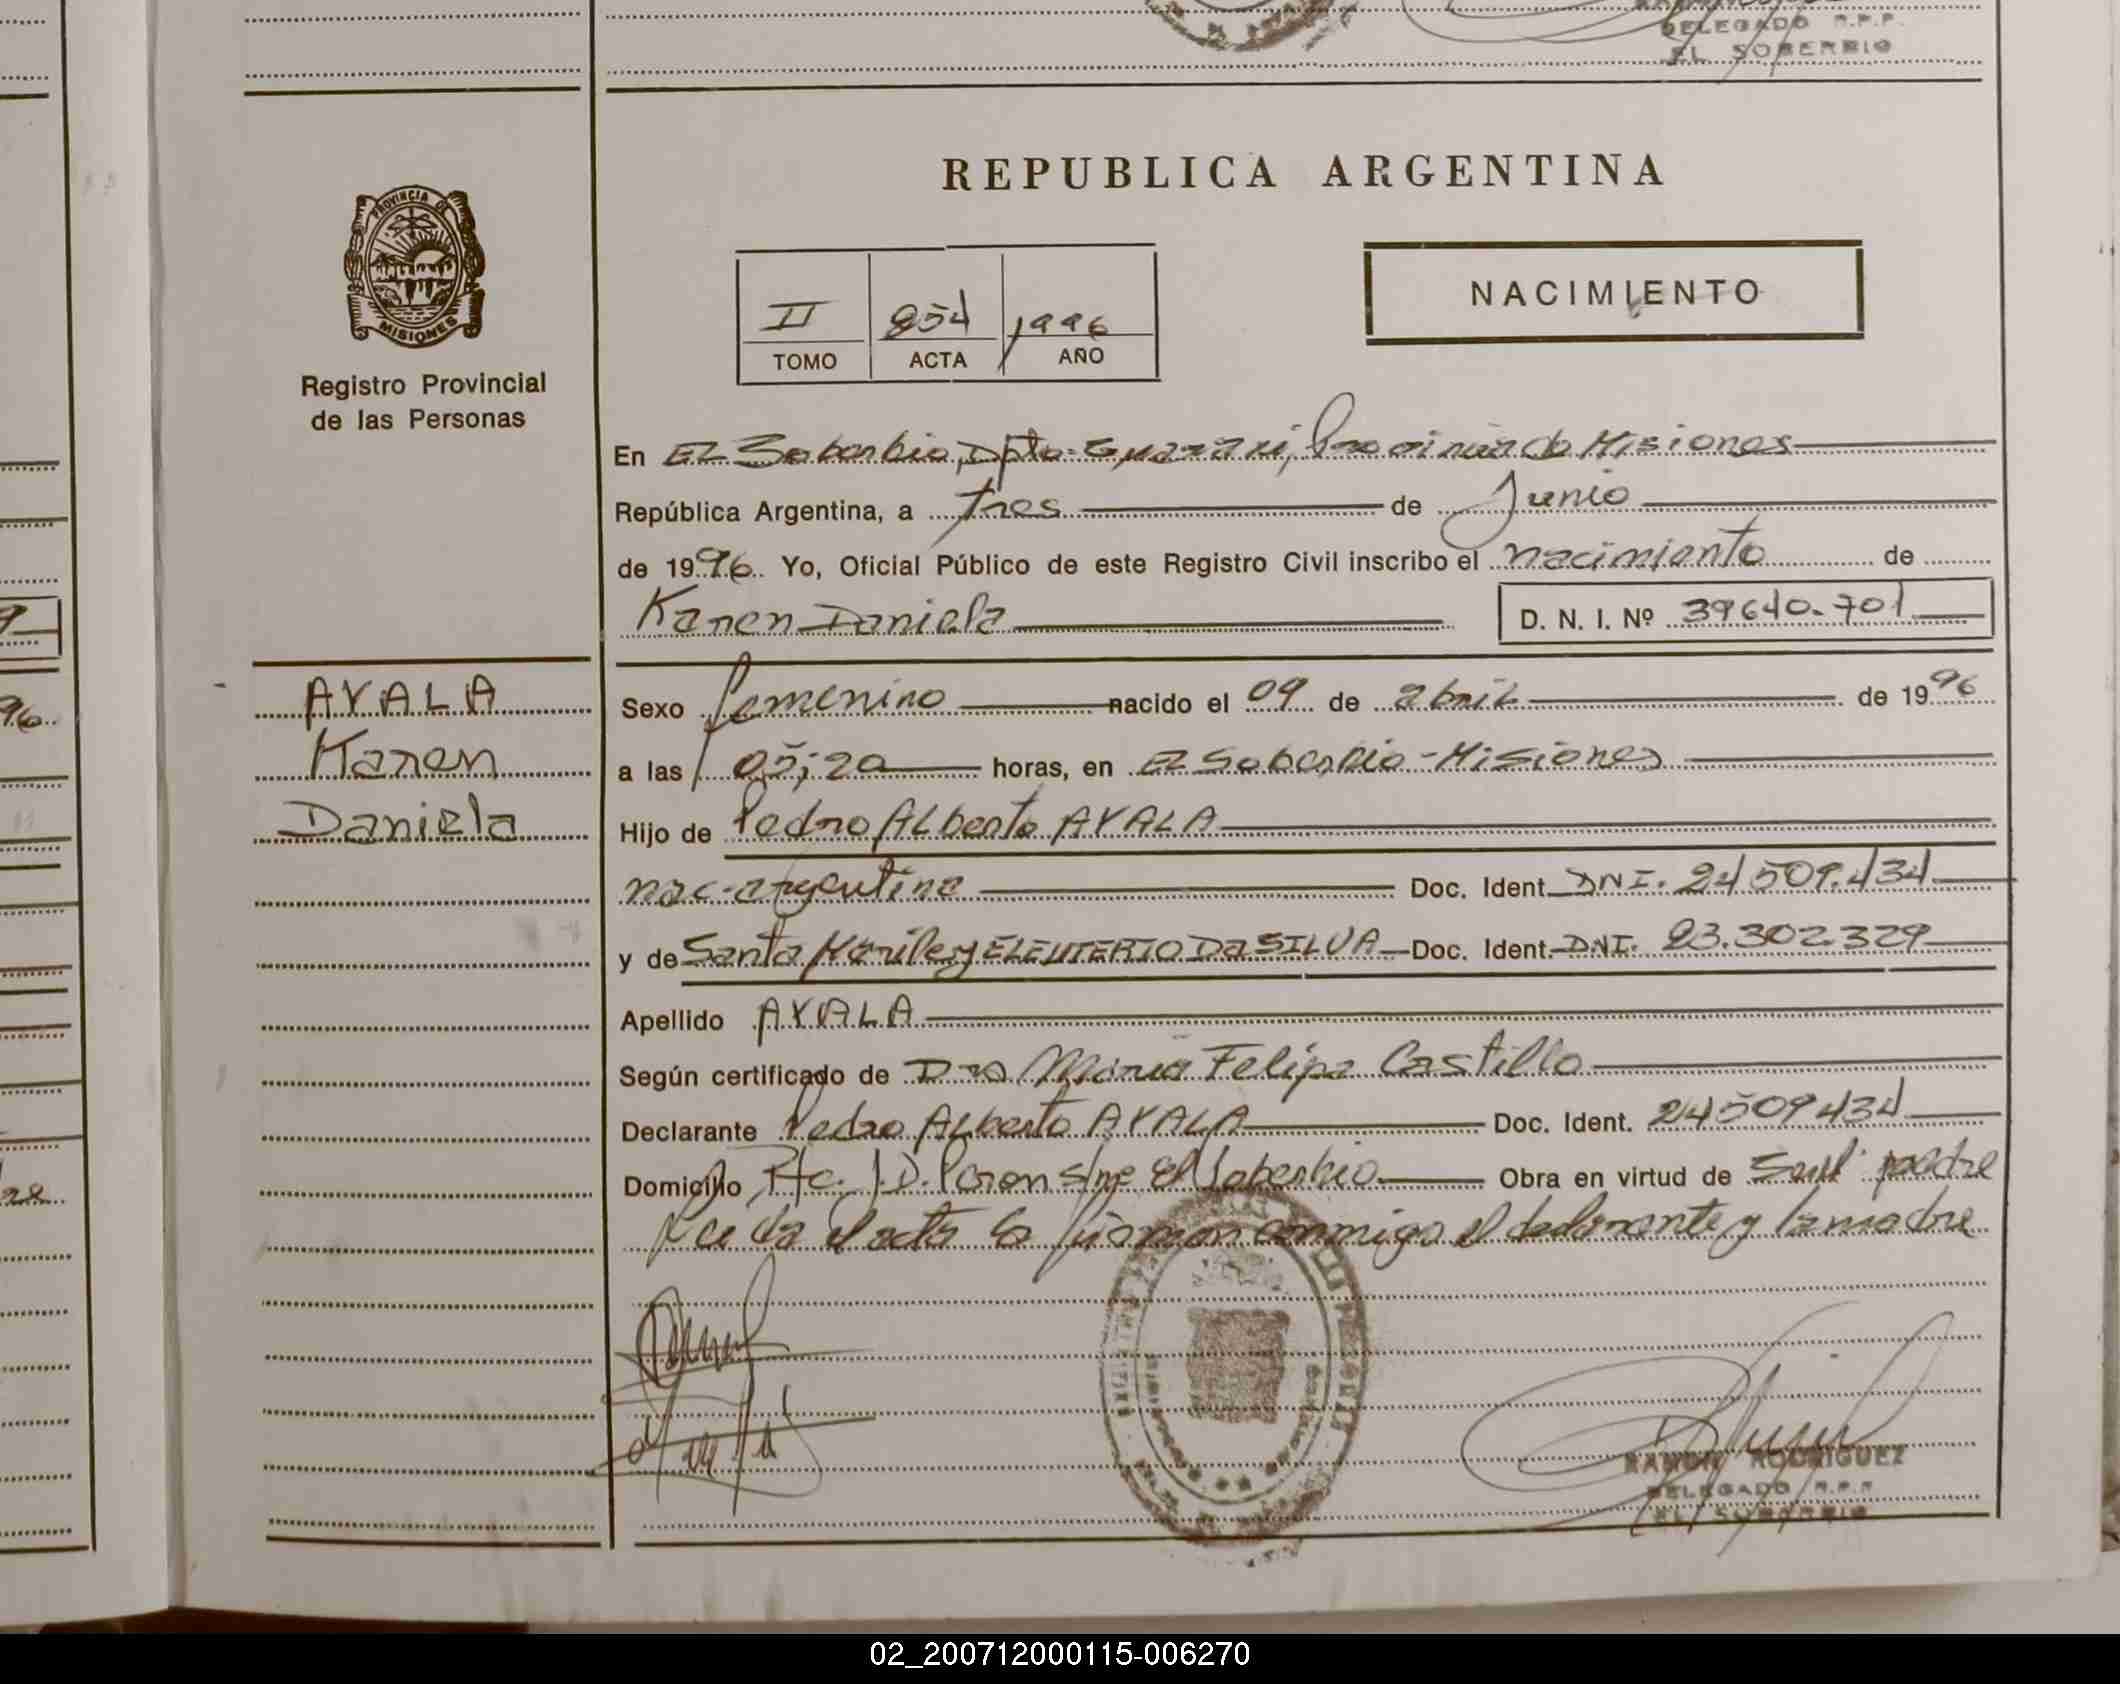 DELEGADO R.P.P.
EL SOBERBIO
PROVINCIA DE
MISIONES
Registro Provincial
de las Personas
REPUBLICA ARGENTINA
II 854 1996
TOMO ACTA AÑO
NACIMIENTO
En El Soberbio, Dpto. Guarani, Provincia de Misiones
República Argentina, a tres de Junio
de 1996. Yo, Oficial Público de este Registro Civil inscribo el nacimiento de
Karen Daniela D. N. I. Nº 39640.701
AYALA
Karen
Daniela
Sexo femenino nacido el 09 de abril de 1996
a las 05;20 horas, en El Soberbio - Misiones
Hijo de Pedro Alberto AYALA
nac. argentina Doc. Ident. DNI. 24509.434
y de Santa Marile y ELEUTERIO Da SILVA Doc. Ident. DNI. 23.302.329
Apellido AYALA
Según certificado de Dra Maria Felipa Castillo
Declarante Pedro Alberto AYALA Doc. Ident. 24509434
Domicilio Pte. J.D. Peron s/nº El Soberbio Obra en virtud de padre
el acta la firman conmigo el declarante y la madre
RAMON RODRIGUEZ
DELEGADO R.P.P.
EL SOBERBIO
02_200712000115-006270